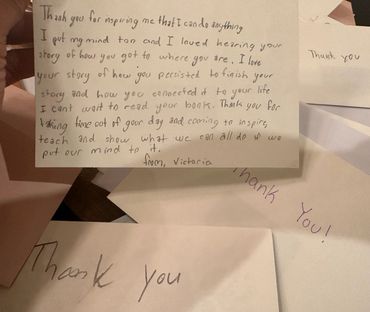 Thank you for inspiring me that I can do anything
I put my mind too and I loved hearing your
story of how you got to where you are. I love
your story of how you persisted to finish your
story and how you connected it to your life
I cant wait to read your book. Thank you for
taking time out of your day and coming to inspire,
teach and show what we can all do if we
put our mind to it.
from, Victoria
Thank you
Thank You!
Thank you